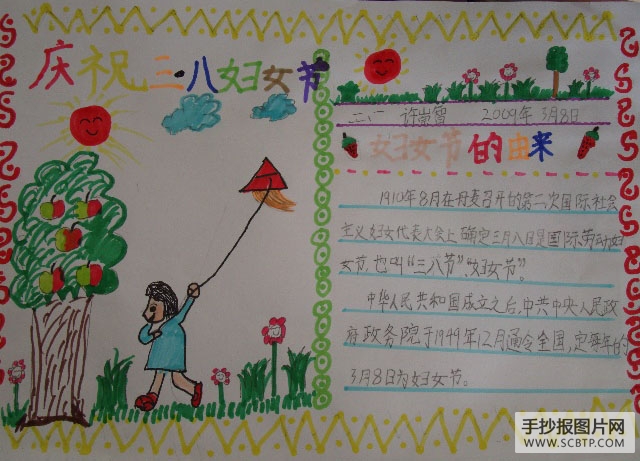 庆祝三·八妇女节
二、二 许崇曾 2009年3月8日
妇女节的由来
1910年8月在丹麦召开的第二次国际社会
主义妇女代表大会上确定三月八日是国际劳动妇
女节,也叫“三八节”、“妇女节”。
中华人民共和国成立之后,中共中央人民政
府政务院于1949年12月通令全国,定每年的
3月8日为妇女节。
手抄报图片网
WWW.SCBTP.COM